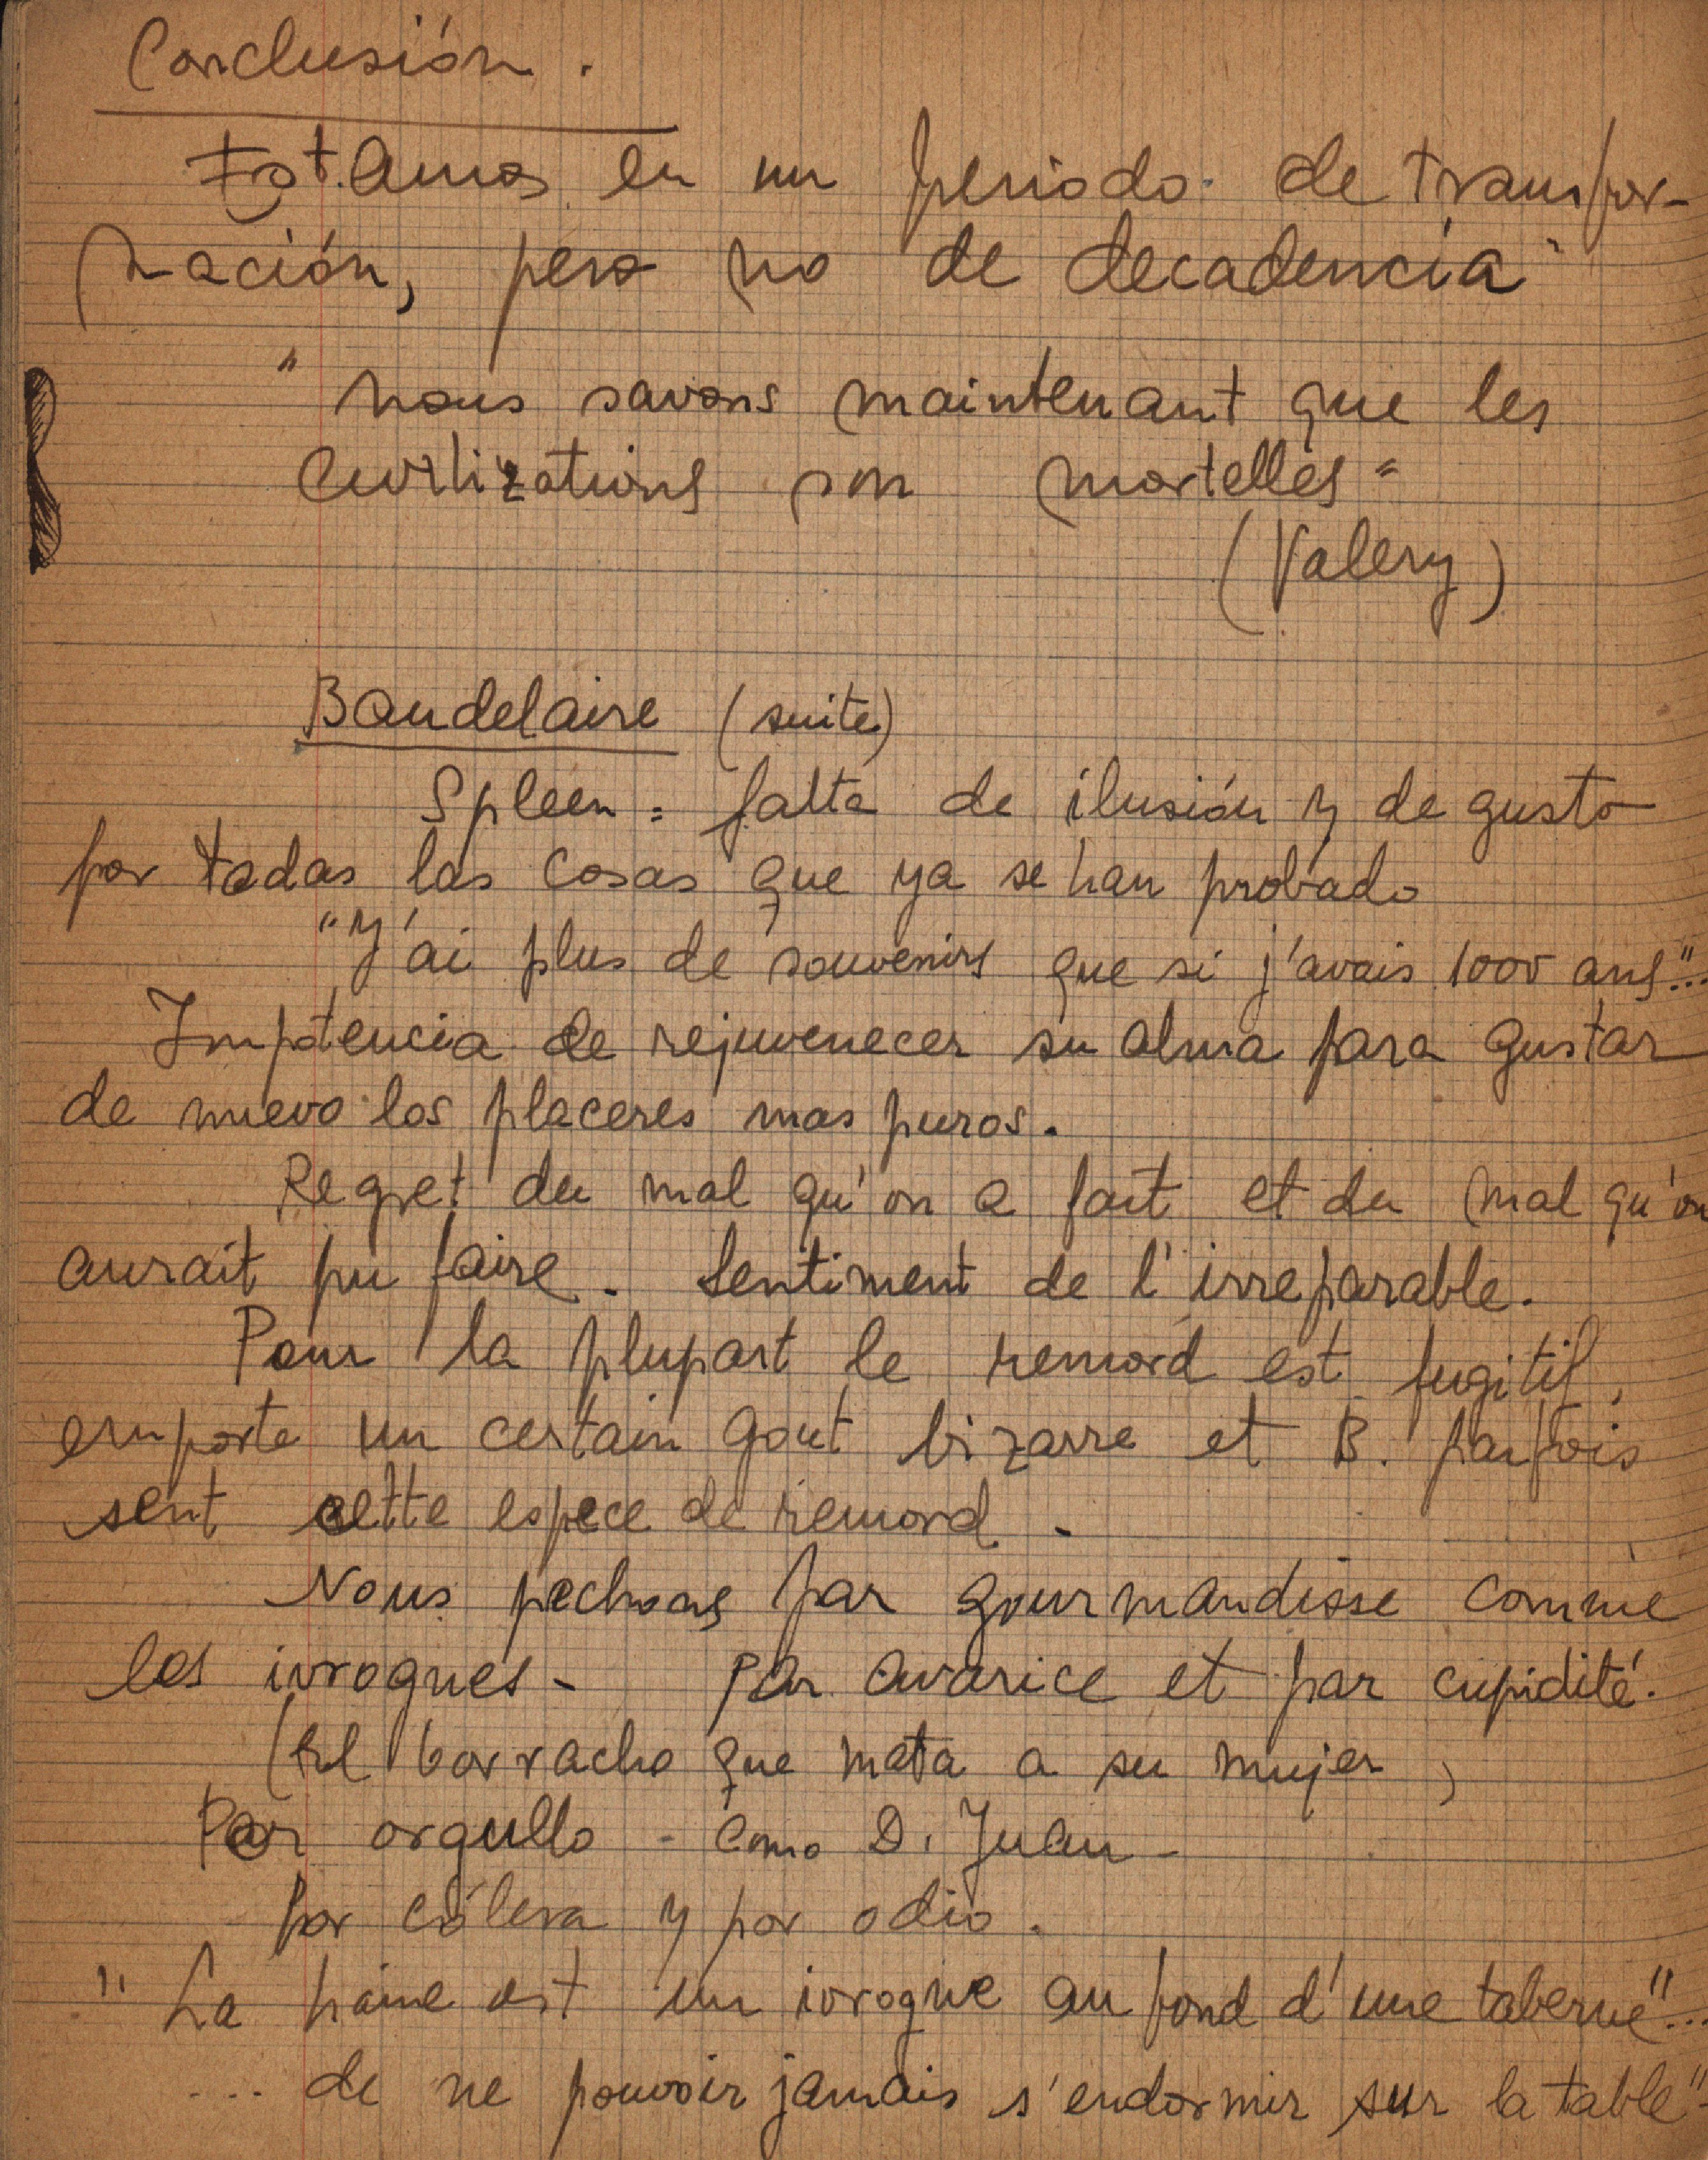 Conclusión.
Estamos en un periodo de transfor-
mación, pero no de decadencia
"nous savons maintenant que les
civilizations son mortelles"
(Valery)
Baudelaire (suite)
Spleen = falta de ilusión y de gusto
por todas las cosas que ya se han probado
"J'ai plus de souvenirs que si j'avais 1000 ans"...
Impotencia de rejuvenecer su alma para gustar
de nuevo los placeres mas puros.
Regret du mal qu'on a fait et du mal qu'on
aurait pu faire. Sentiment de l'irreparable.
Pour la plupart le remord est fugitif,
emporte un certain gout bizarre et B. parfois
sent cette espece de remord.
Nous pechons par gourmandisse comme
les ivrognes - Par avarice et par cupidité.
(El borracho que mata a su mujer)
Por orgullo - como D. Juan -
por cólera y por odio.
"La haine est un ivrogne au fond d'une taberne"...
... de ne pouvoir jamais s'endormir sur la table"